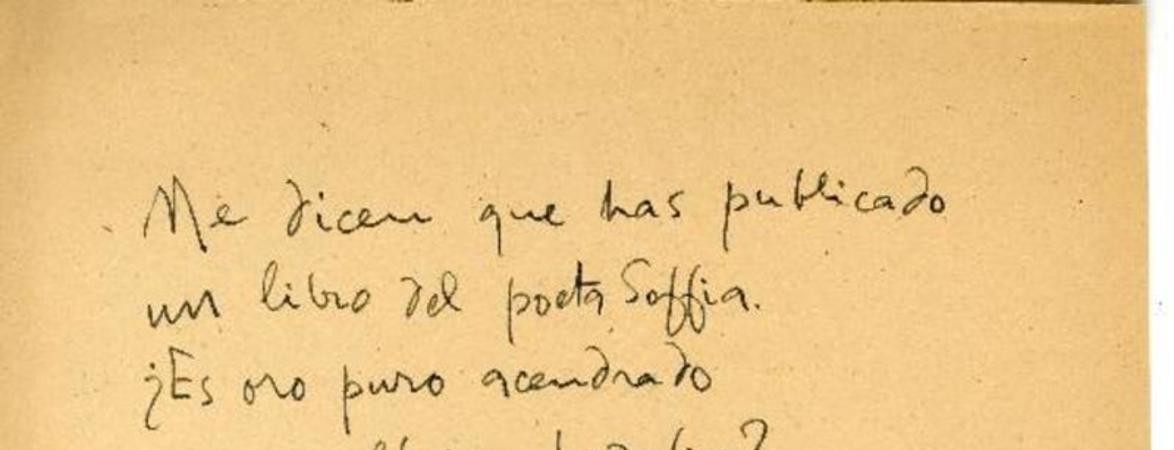 Me dicen que has publicado
un libro del poeta Soffia.
¿Es oro puro acendrado